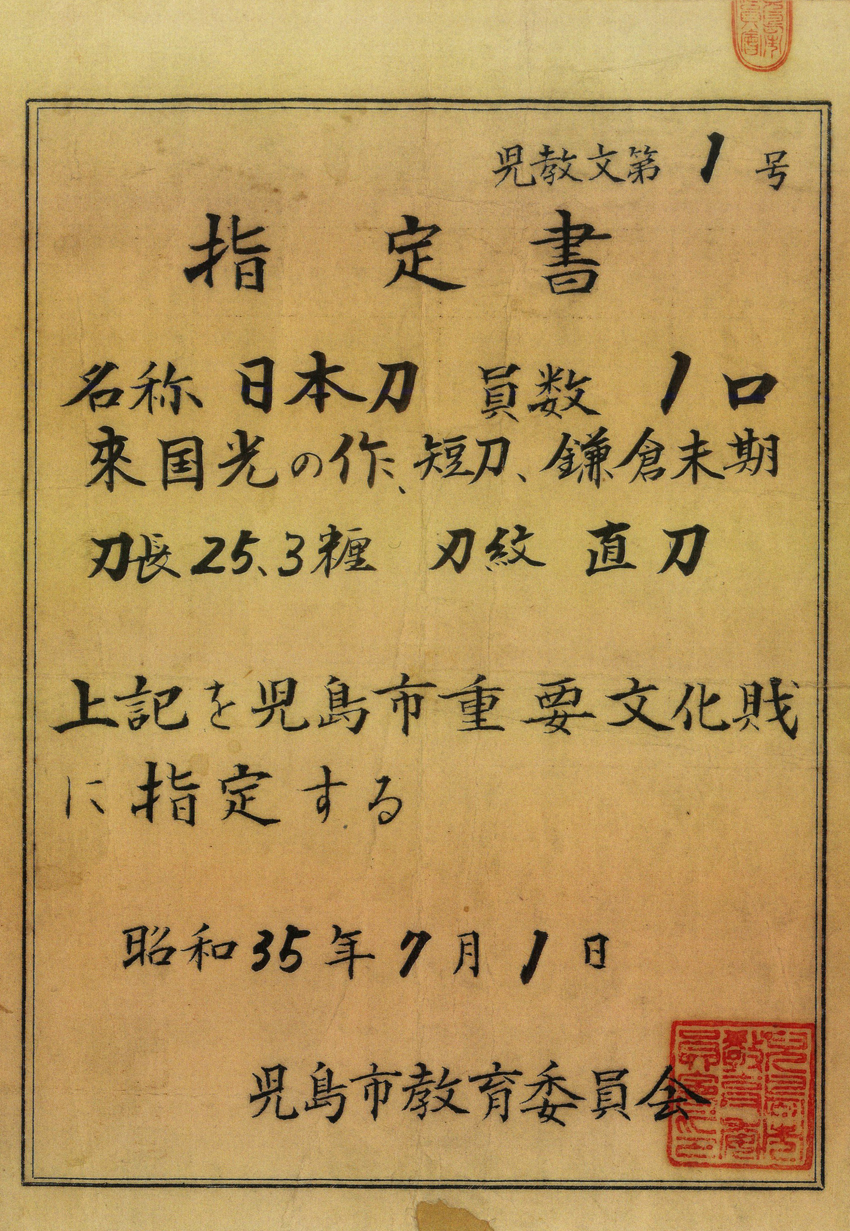 児教文第 1 号
指定書
名称 日本刀 員数 1口
來国光の作、短刀、鎌倉末期
刃長25.3糎 刃紋 直刀
上記を児島市重要文化財
に指定する
昭和35年7月1日
児島市教育委員会